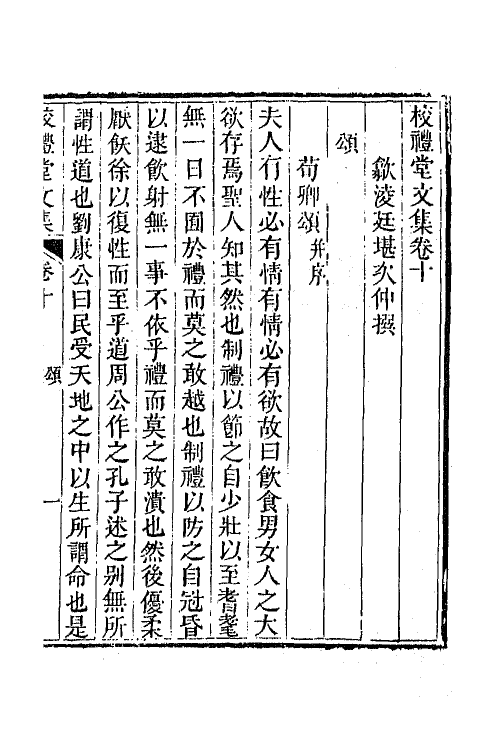 校禮堂文集卷十
歙淩廷堪次仲撰
頌
荀卿頌并序
夫人有性必有情有情必有欲故曰飲食男女人之大
欲存焉聖人知其然也制禮以節之自少壯以至耆耄
無一日不囿於禮而莫之敢越也制禮以防之自冠昏
以逮飲射無一事不依乎禮而莫之敢潰也然後優柔
厭飫徐以復性而至乎道周公作之孔子述之别無所
謂性道也劉康公曰民受天地之中以生所謂命也是
校禮堂文集 卷十 頌 一